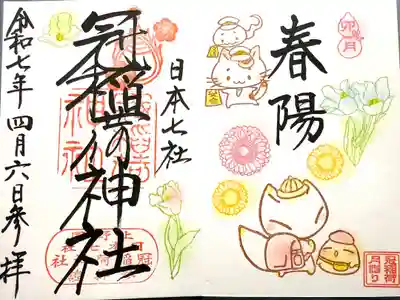 卯月
春陽
冠稲荷
月詣り
日本七社
冠稲荷神社
令和七年四月六日参拝